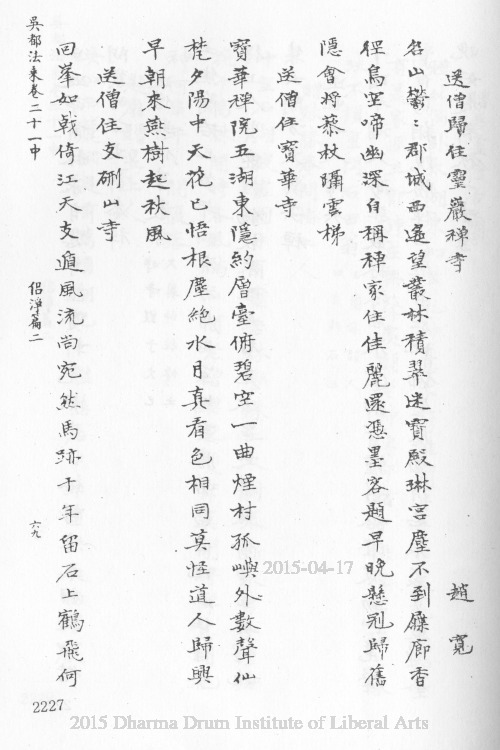 送僧歸住靈巖禪寺　趙寬
名山鬱〻郡城西遥望叢林積翠迷寶殿琳宮塵不到屧廊香
徑鳥空啼幽深自稱禪家住佳麗還憑墨客題早晚懸冠歸舊
隱會將藜杖躡雲梯
送僧住寶華寺
寶華禪院五湖東隱約層臺俯碧空一曲煙村孤嶼外數聲仙
梵夕陽中天花已悟根塵絶水月真看色相同莫怪道人歸興
早朝來燕樹起秋風
送僧住支硎山寺
回峯如戟倚江天支遁風流尚宛然馬跡千年留石上鶴飛何
吳都法乘卷二十一中　侶淨篇二　六九
2227
2015-04-17
2015 Dharma Drum Institute of Liberal Arts